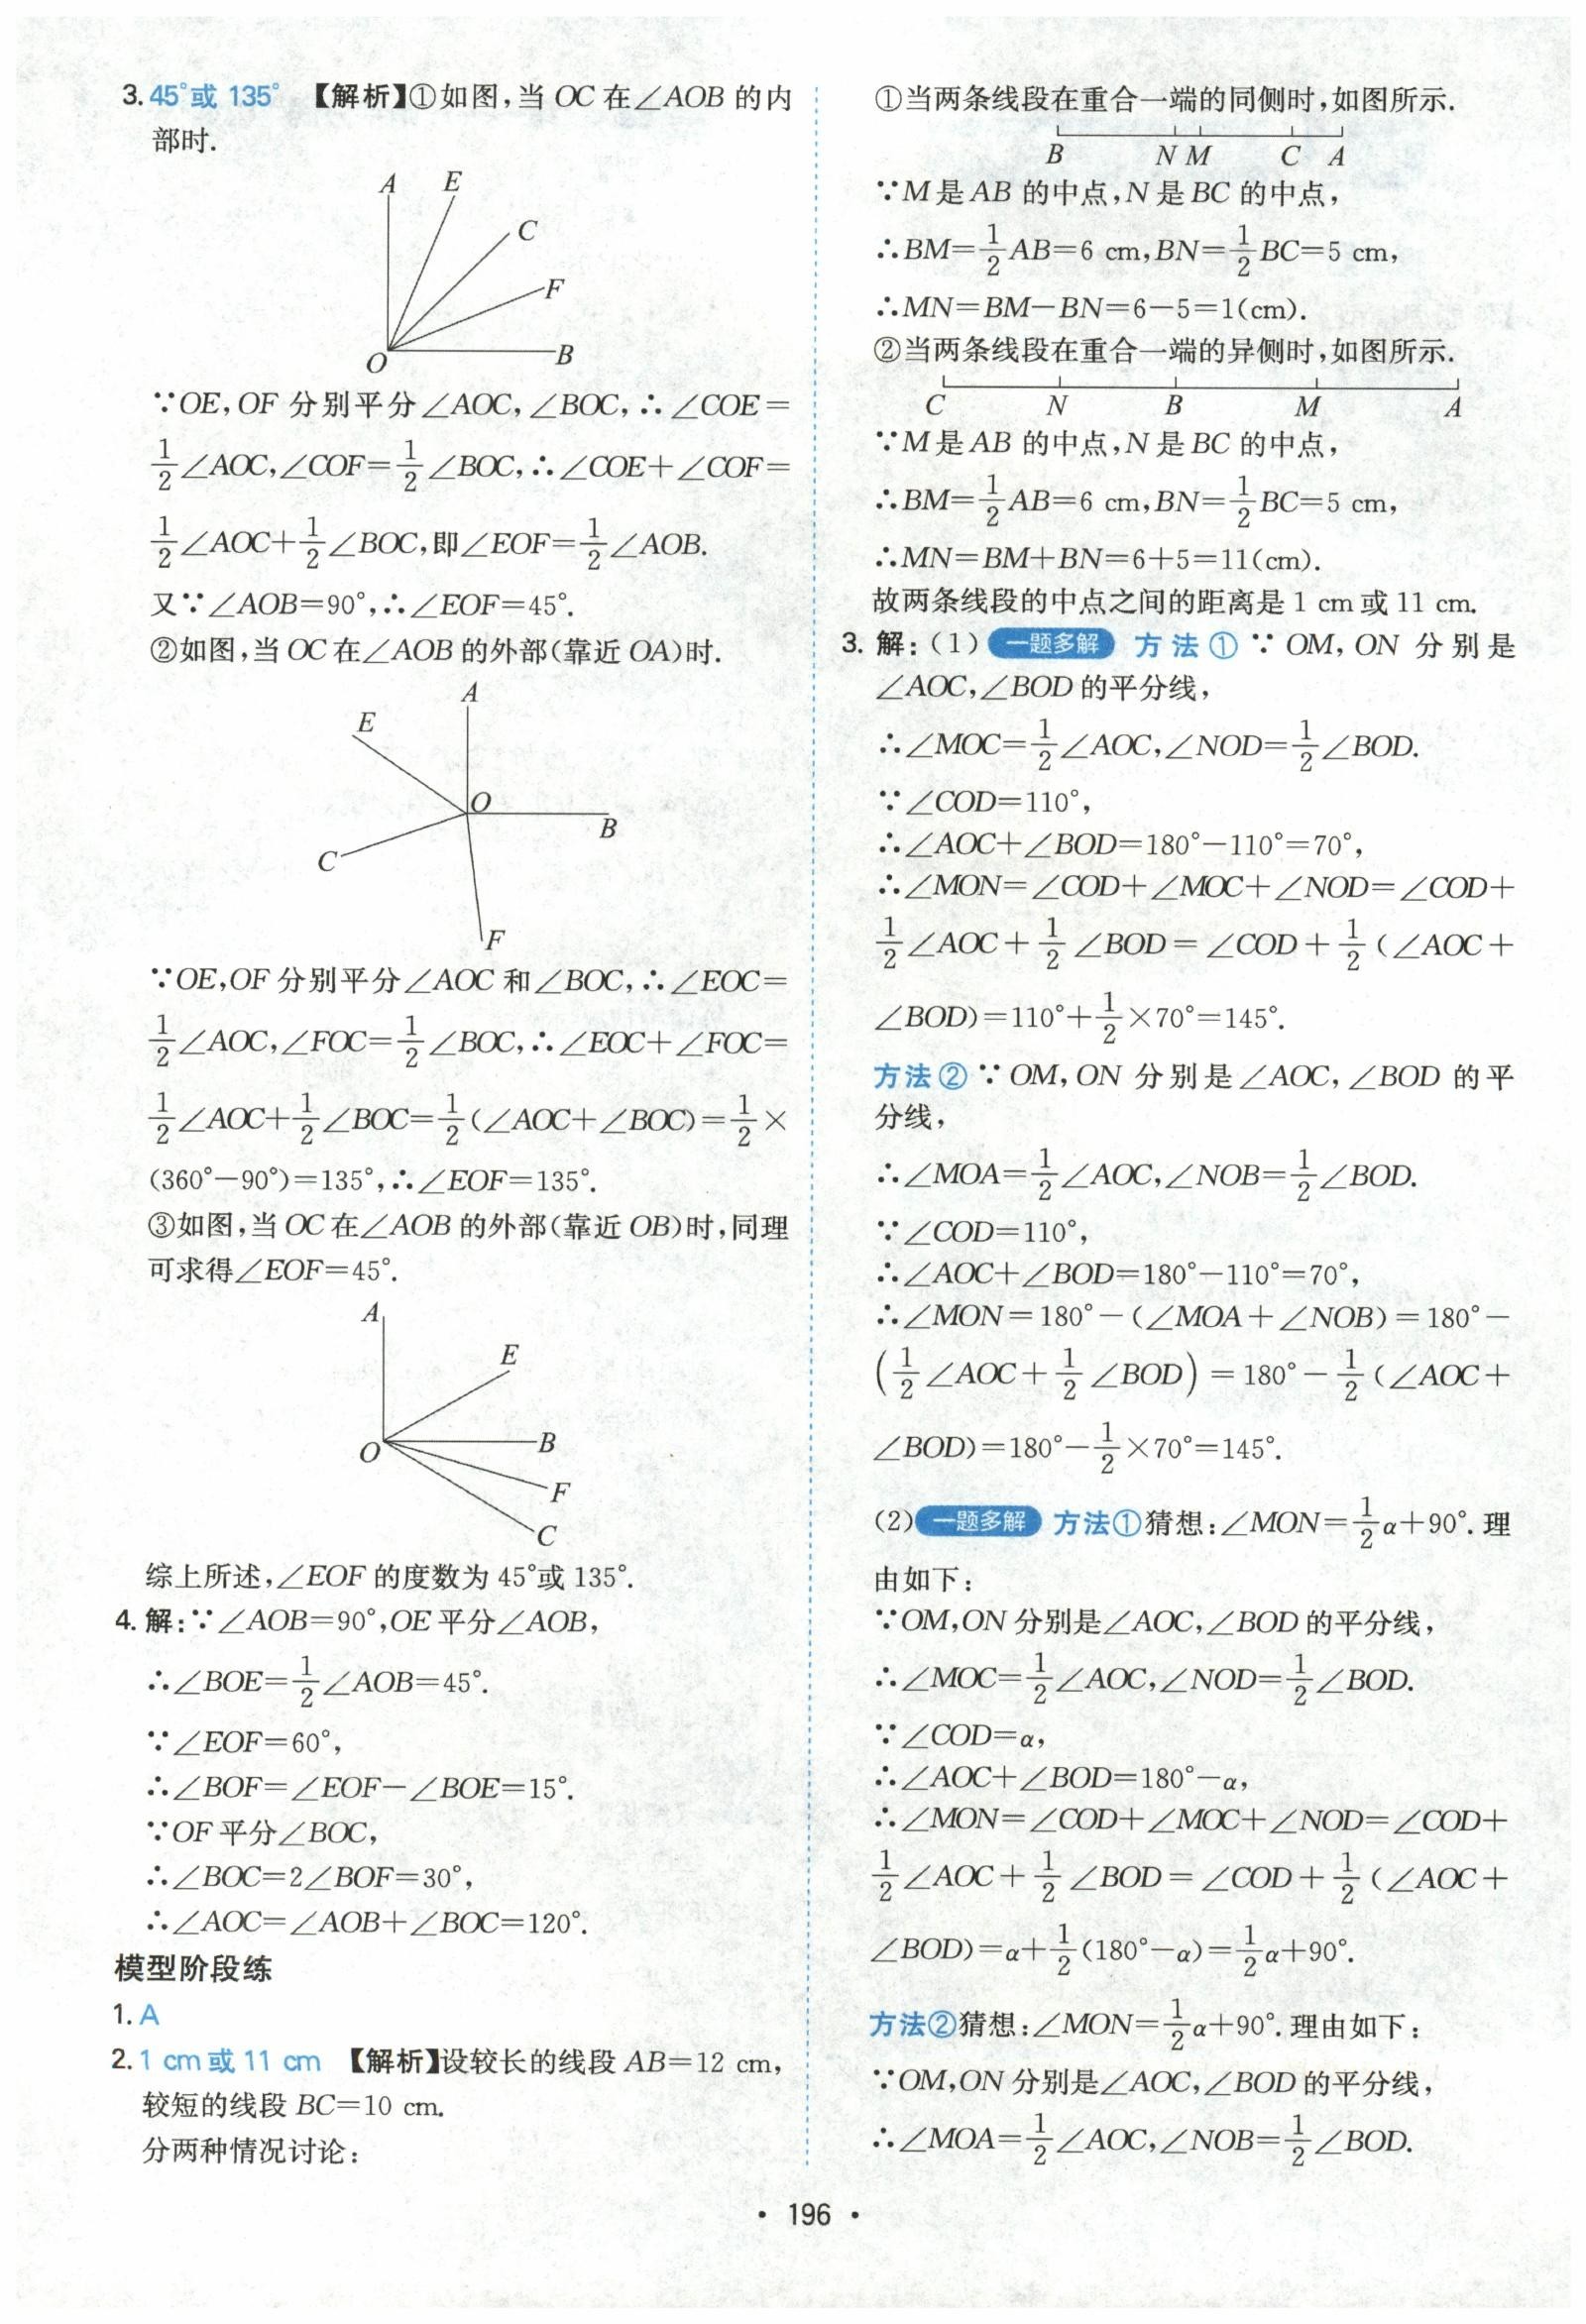 3. 45°或 135° 【解析】①如图,当 OC 在∠AOB 的内
部时.
A E
C
F
O B
∵OE,OF 分别平分∠AOC,∠BOC,∴∠COE=
1/2∠AOC,∠COF=1/2∠BOC,∴∠COE+∠COF=
1/2∠AOC+1/2∠BOC,即∠EOF=1/2∠AOB.
又∵∠AOB=90°,∴∠EOF=45°.
②如图,当 OC 在∠AOB 的外部(靠近 OA)时.
A
E
O
B
C
F
∵OE,OF 分别平分∠AOC 和∠BOC,∴∠EOC=
1/2∠AOC,∠FOC=1/2∠BOC,∴∠EOC+∠FOC=
1/2∠AOC+1/2∠BOC=1/2(∠AOC+∠BOC)=1/2×
(360°-90°)=135°,∴∠EOF=135°.
③如图,当 OC 在∠AOB 的外部(靠近 OB)时,同理
可求得∠EOF=45°.
A
E
O B
F
C
综上所述,∠EOF 的度数为 45°或 135°.
4. 解:∵∠AOB=90°,OE 平分∠AOB,
∴∠BOE=1/2∠AOB=45°.
∵∠EOF=60°,
∴∠BOF=∠EOF-∠BOE=15°.
∵OF 平分∠BOC,
∴∠BOC=2∠BOF=30°,
∴∠AOC=∠AOB+∠BOC=120°.
模型阶段练
1. A
2. 1 cm或 11 cm 【解析】设较长的线段 AB=12 cm,
较短的线段 BC=10 cm.
分两种情况讨论:
①当两条线段在重合一端的同侧时,如图所示.
B N M C A
∵M 是 AB 的中点,N 是 BC 的中点,
∴BM=1/2AB=6 cm,BN=1/2BC=5 cm,
∴MN=BM-BN=6-5=1(cm).
②当两条线段在重合一端的异侧时,如图所示.
C N B M A
∵M 是 AB 的中点,N 是 BC 的中点,
∴BM=1/2AB=6 cm,BN=1/2BC=5 cm,
∴MN=BM+BN=6+5=11(cm).
故两条线段的中点之间的距离是 1 cm 或 11 cm.
3. 解:(1) 一题多解 方法① ∵OM,ON 分别是
∠AOC,∠BOD 的平分线,
∴∠MOC=1/2∠AOC,∠NOD=1/2∠BOD.
∵∠COD=110°,
∴∠AOC+∠BOD=180°-110°=70°,
∴∠MON=∠COD+∠MOC+∠NOD=∠COD+
1/2∠AOC+1/2∠BOD=∠COD+1/2(∠AOC+
∠BOD)=110°+1/2×70°=145°.
方法② ∵OM,ON 分别是∠AOC,∠BOD 的平
分线,
∴∠MOA=1/2∠AOC,∠NOB=1/2∠BOD.
∵∠COD=110°,
∴∠AOC+∠BOD=180°-110°=70°,
∴∠MON=180°-(∠MOA+∠NOB)=180°-
(1/2∠AOC+1/2∠BOD)=180°-1/2(∠AOC+
∠BOD)=180°-1/2×70°=145°.
(2) 一题多解 方法①猜想:∠MON=1/2α+90°.理
由如下:
∵OM,ON 分别是∠AOC,∠BOD 的平分线,
∴∠MOC=1/2∠AOC,∠NOD=1/2∠BOD.
∵∠COD=α,
∴∠AOC+∠BOD=180°-α,
∴∠MON=∠COD+∠MOC+∠NOD=∠COD+
1/2∠AOC+1/2∠BOD=∠COD+1/2(∠AOC+
∠BOD)=α+1/2(180°-α)=1/2α+90°.
方法②猜想:∠MON=1/2α+90°.理由如下:
∵OM,ON 分别是∠AOC,∠BOD 的平分线,
∴∠MOA=1/2∠AOC,∠NOB=1/2∠BOD.
• 196 •